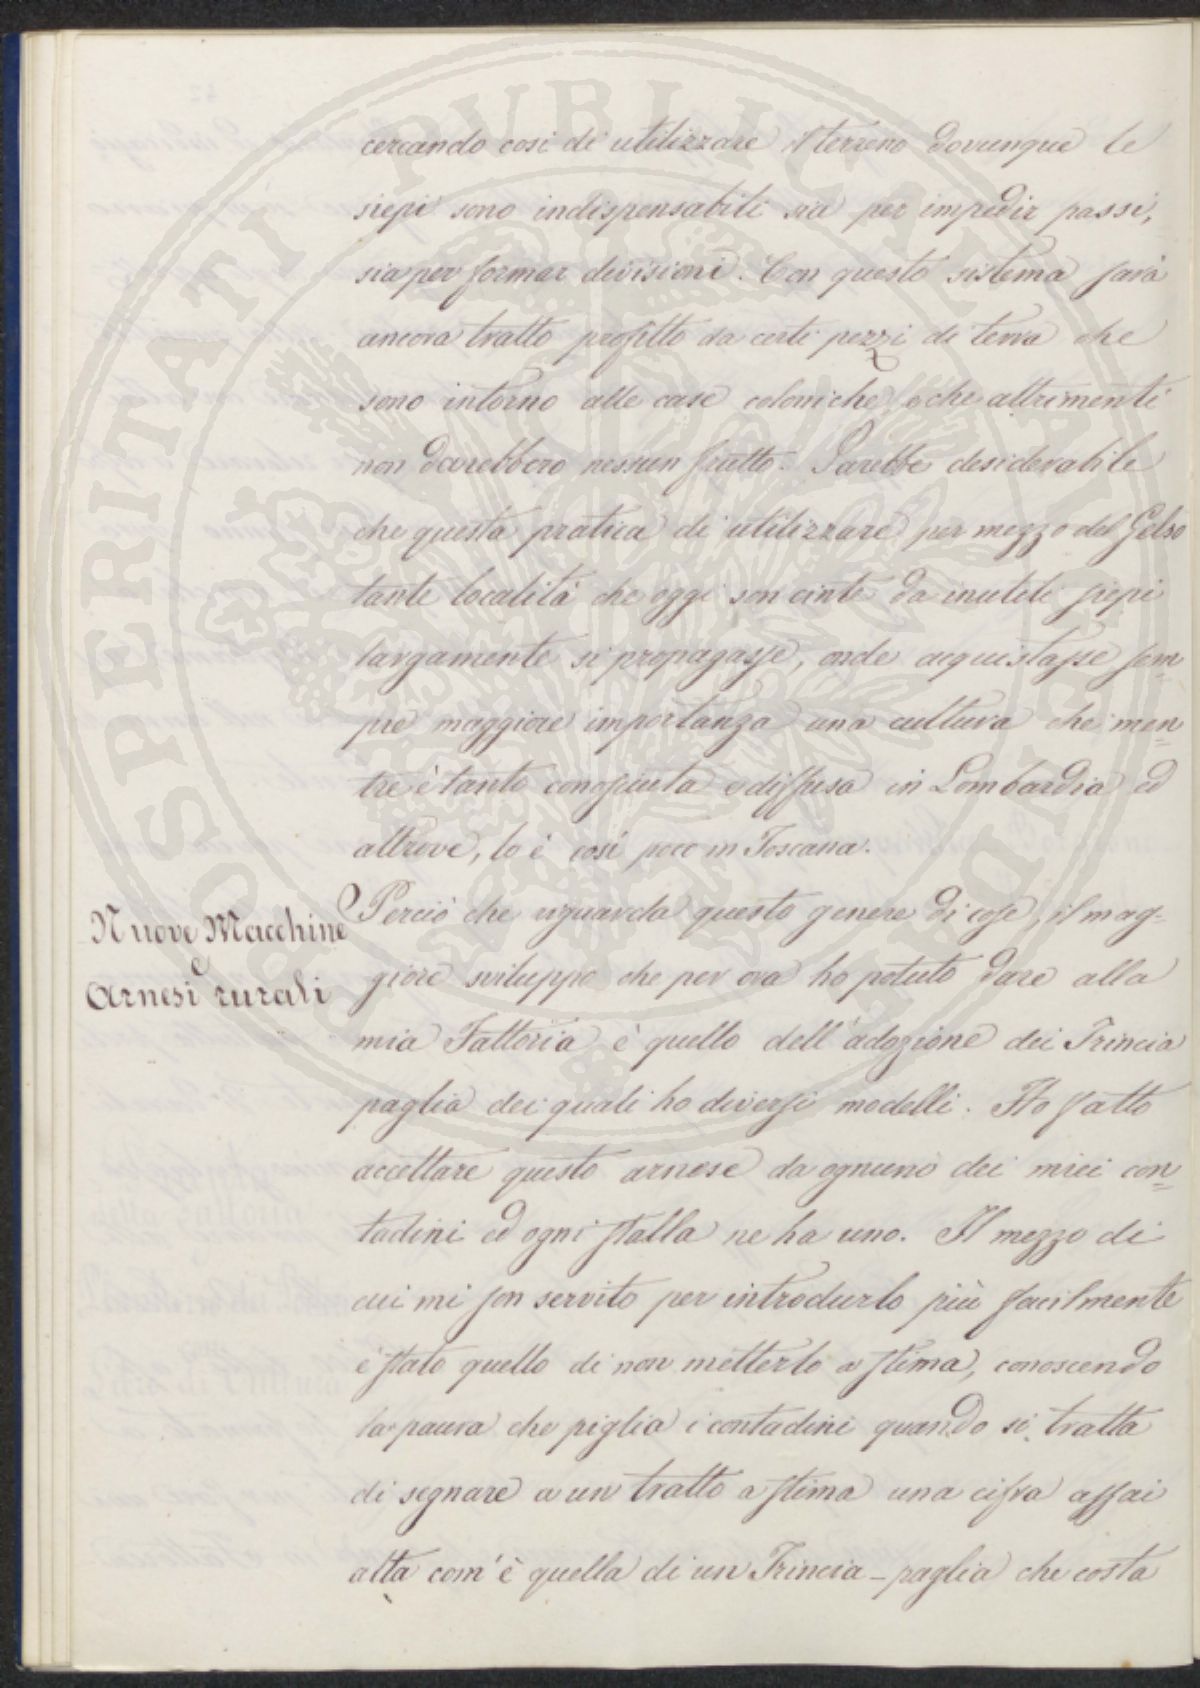 cercando così di utilizzare il terreno dovunque le
siepi sono indispensabili sia per impedir passi,
sia per formar divisioni. Con questo sistema sarà
ancora tratto profitto da certi pezzi di terra che
sono intorno alle case coloniche e che altrimenti
non darebbero nessun frutto. Sarebbe desiderabile
che questa pratica di utilizzare per mezzo del Gelso
tante località che oggi son cinte da inutili siepi
largamente si propagasse, onde acquistasse sem=
pre maggiore importanza una cultura che men=
tre è tanto conosciuta e diffusa in Lombardia ed
altrove, lo è così poco in Toscana.
Nuove Macchine
e
Arnesi rurali
Perciò che riguarda questo genere di cose, il mag-
giore sviluppo che per ora ho potuto dare alla
mia Fattoria è quello dell'adozione dei Trincia
paglia dei quali ho diversi modelli. Ho fatto
accettare questo arnese da ognuno dei miei con=
tadini ed ogni stalla ne ha uno. Il mezzo di
cui mi son servito per introdurlo più facilmente
è stato quello di non metterlo a stima, conoscendo
la paura che piglia i contadini quando si tratta
di segnare a un tratto a stima una cifra assai
alta com'è quella di un Trincia-paglia che costa
PROSPERITATI PUBLICAE AUGENDAE